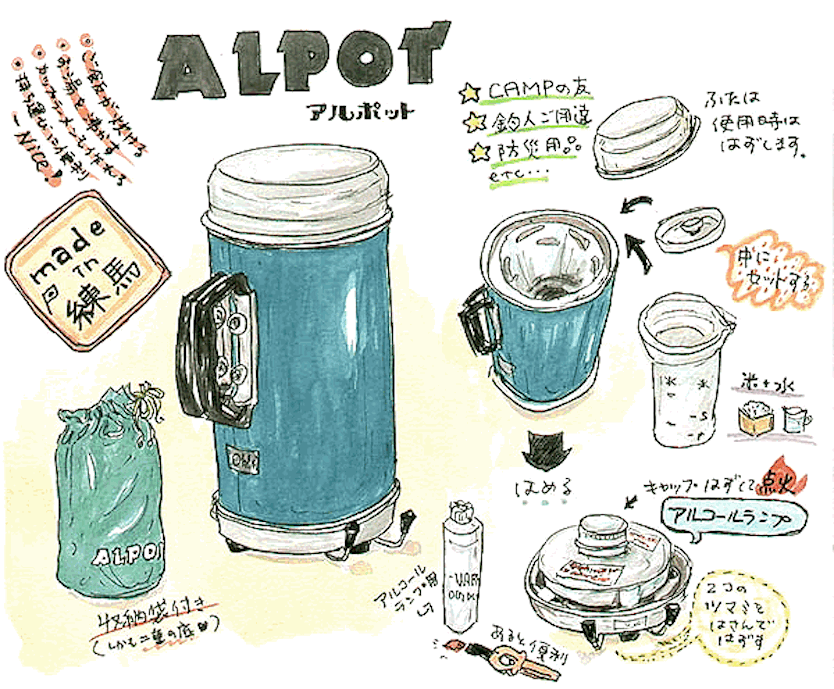 ALPOT
アルポット
ご飯が炊ける
お湯も沸かす
カップラーメンもイケる
持ち運びに便利
NICE!
made
in
練馬
CAMPの友
釣人ご用達
防災用品
etc…
ふたは
使用時は
はずします。
中に
セットする
米 水
米+水
はめる
キャップはずして点火
アルコールランプ
2コの
ツマミを
はさんで
はずす
アルコール
ランプ用
あると便利
ALPOT
収納袋付き
(しかも二重の底)